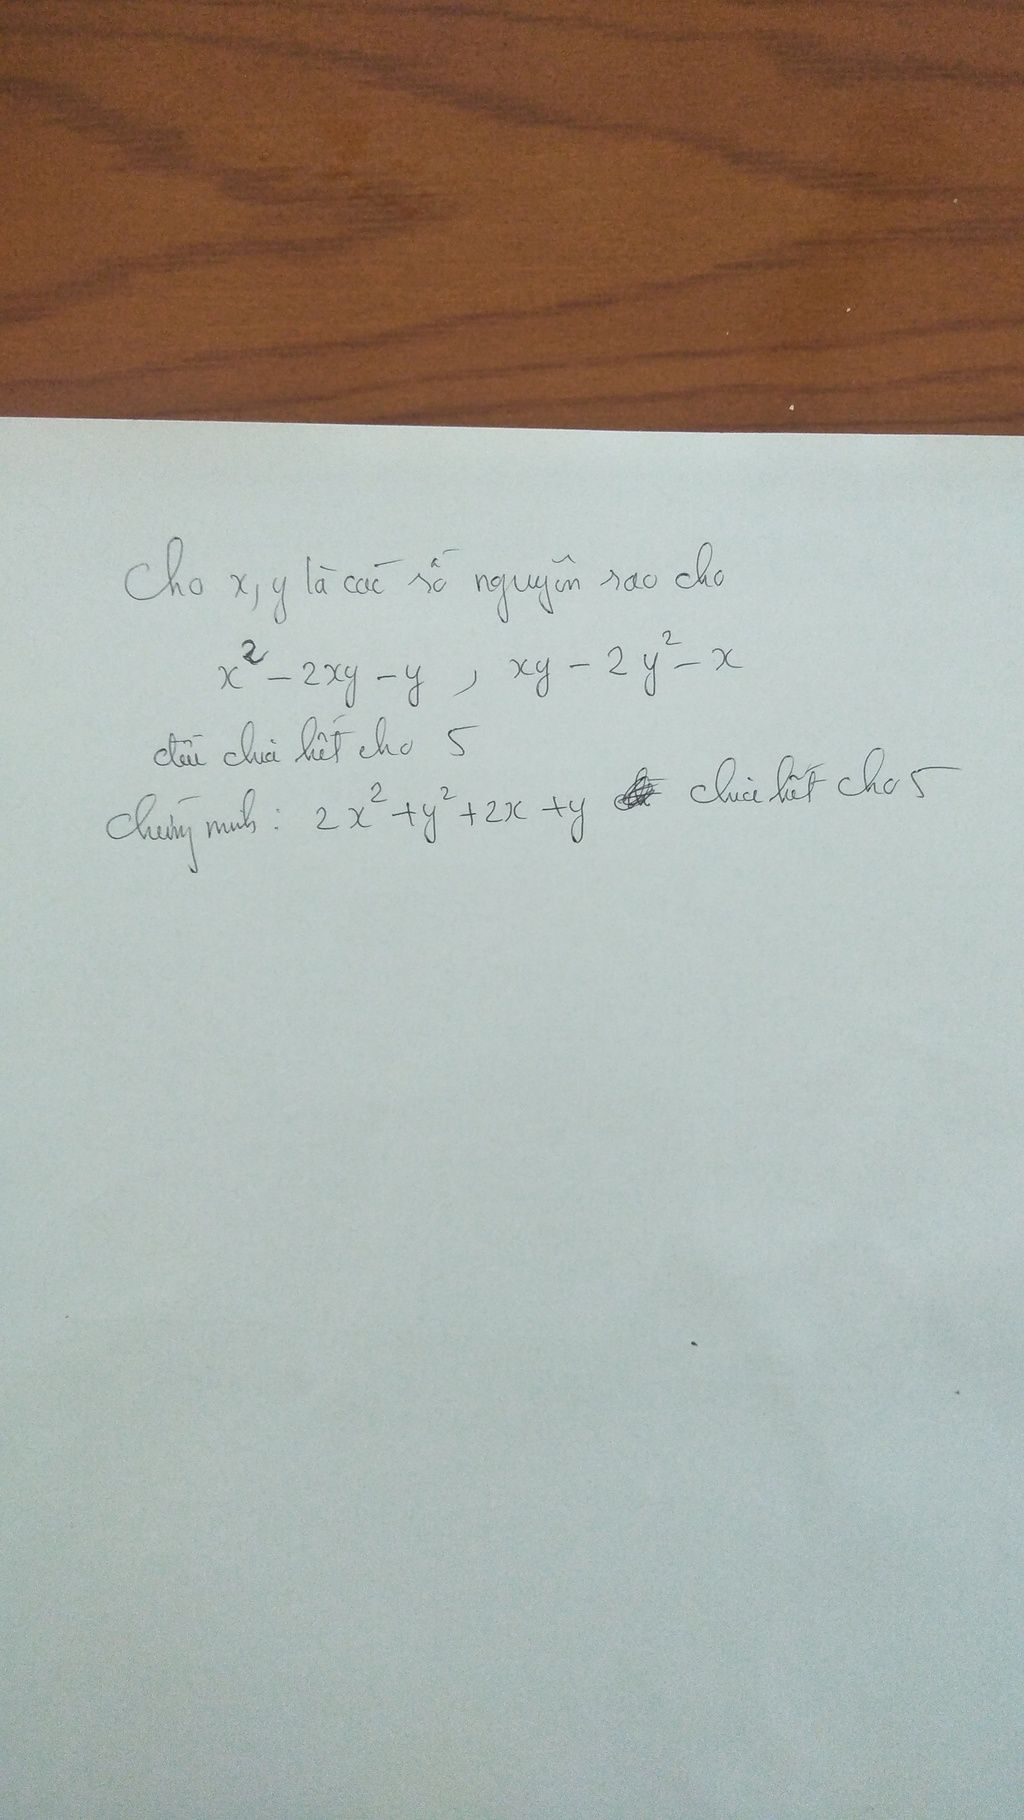 Cho x, y là các số nguyên sao cho
x² - 2xy - y , xy - 2y² - x
đều chia hết cho 5
Chứng minh : 2x² + y² + 2x + y chia hết cho 5